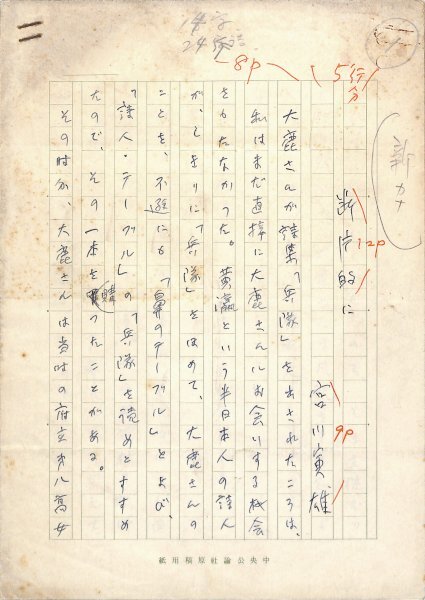 二
14字
24行詰
8p
5行分
新カナ
断片的に
12p
宮川寅雄
9p
大鹿さんが詩集「兵隊」を出されたころは、
私はまだ直接に大鹿さんにお会いする機会
をもたなかった。黄瀛という半日本人の詩人
が、しきりに「兵隊」をほめて、大鹿さんの
ことを、不遜にも「鼻のテーブル」とよび、
「詩人・テーブル」の「兵隊」を読めとすすめ
たので、その一本を購ったことがある。
その時分、大鹿さんは当時の府立第八高女
中央公論社原稿用紙